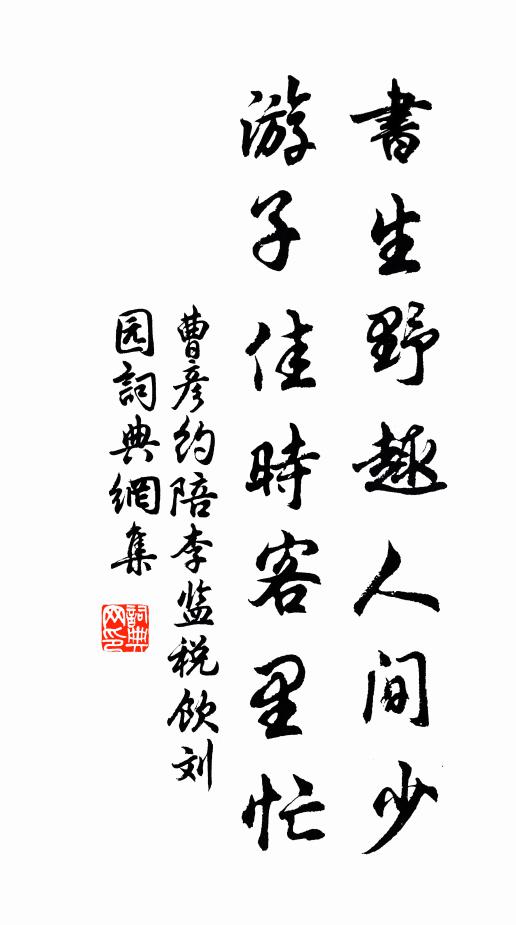 書生野趣人间少
游子佳時客里忙
曹彦约陪李监税饮刘
园詞典網集
詞典网印